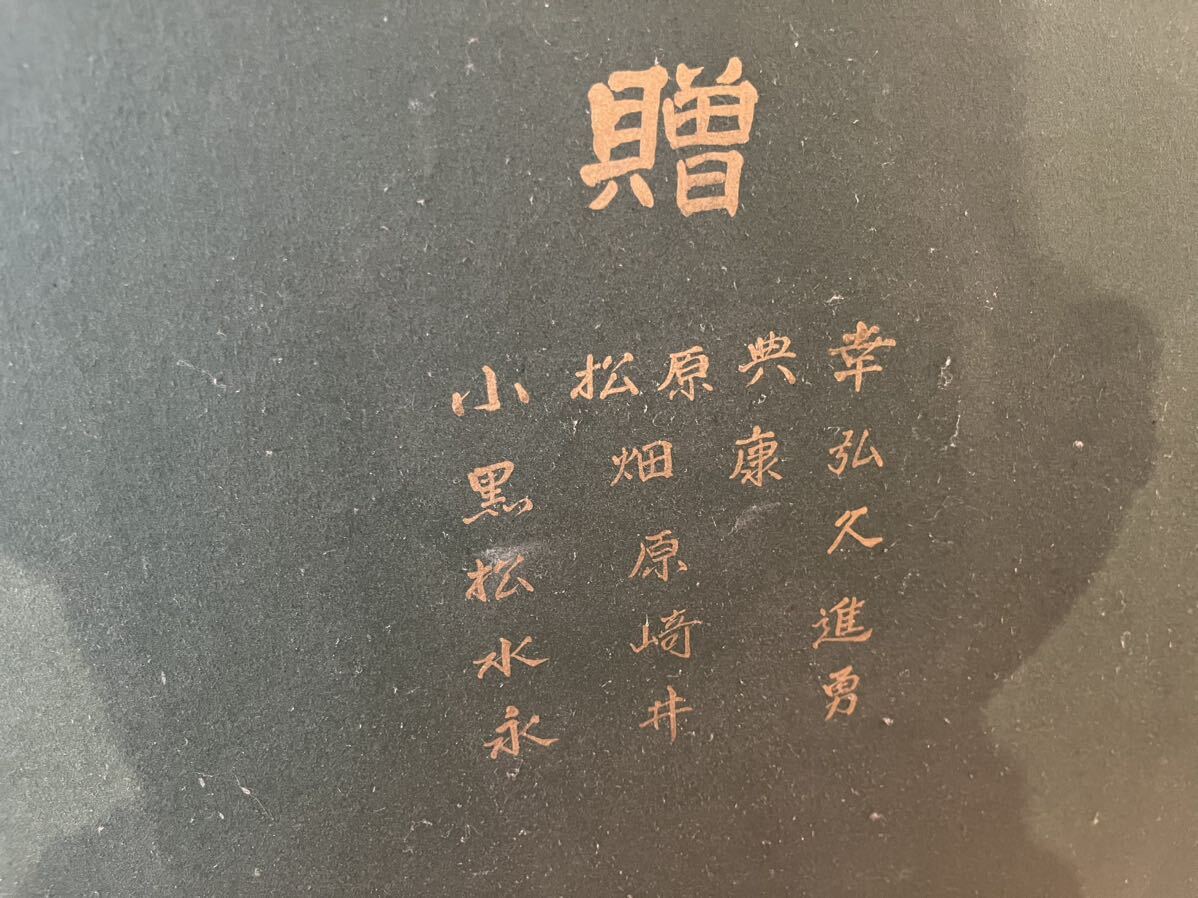 贈
小松原典幸
黒畑康弘
松原久
水崎進
永井勇